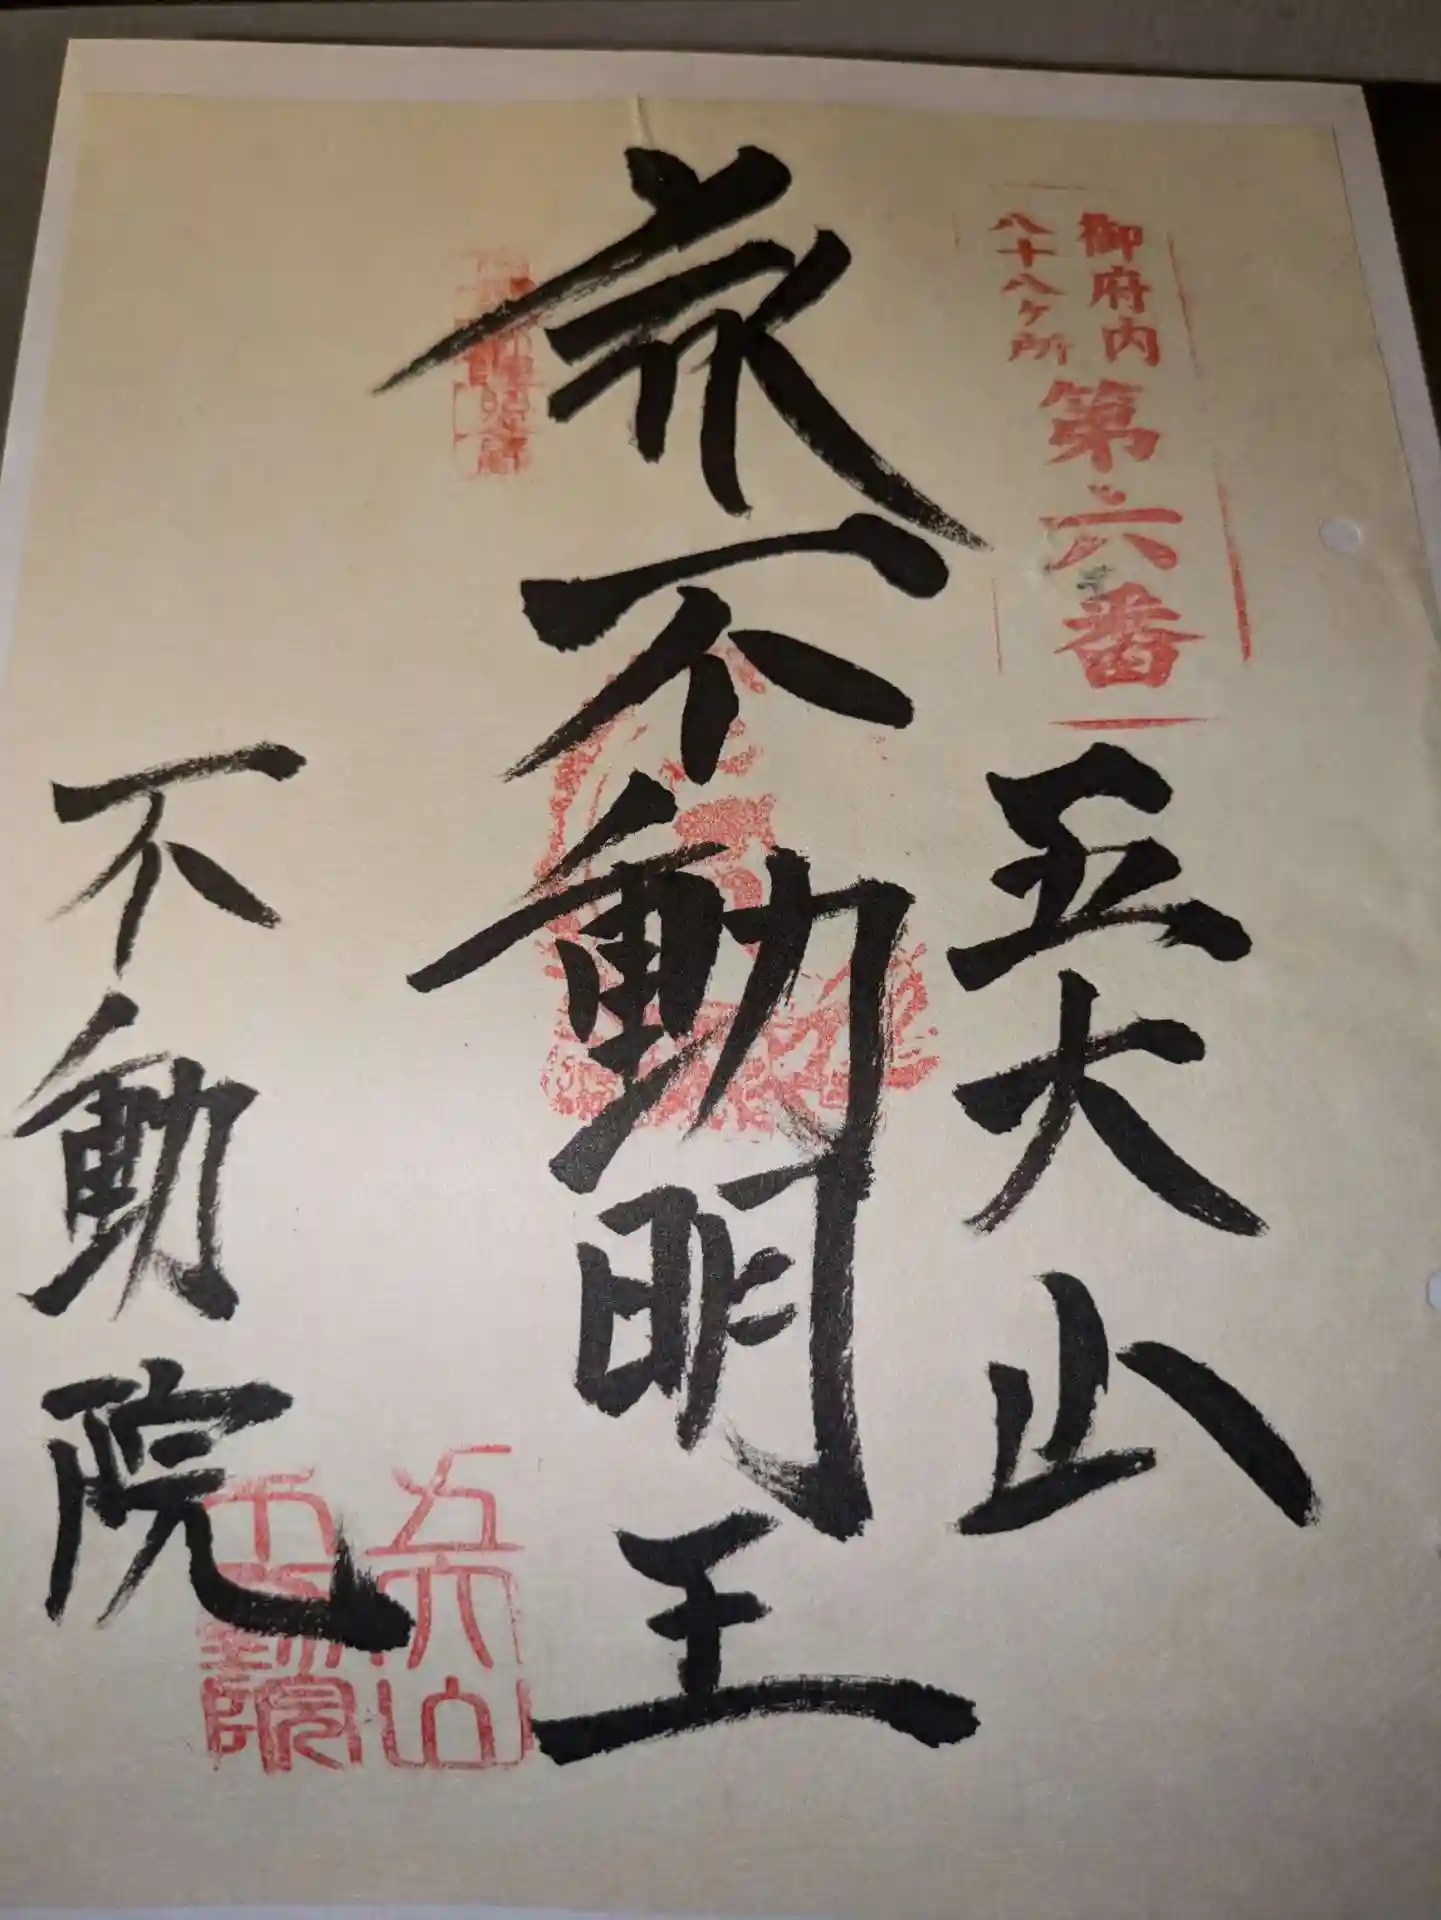 御府内
八十八ヶ所
第六番
五大山
不動明王
不動院
五大山
不動院